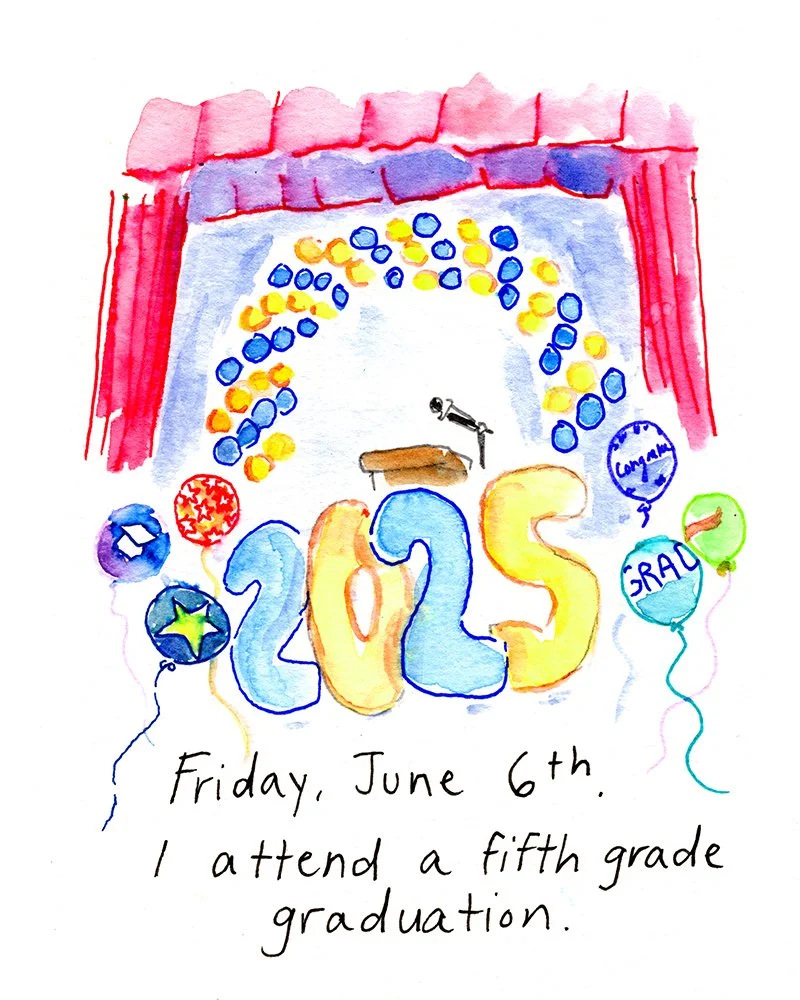 Congrats
GRAD
2025
Friday, June 6th.
I attend a fifth grade
graduation.